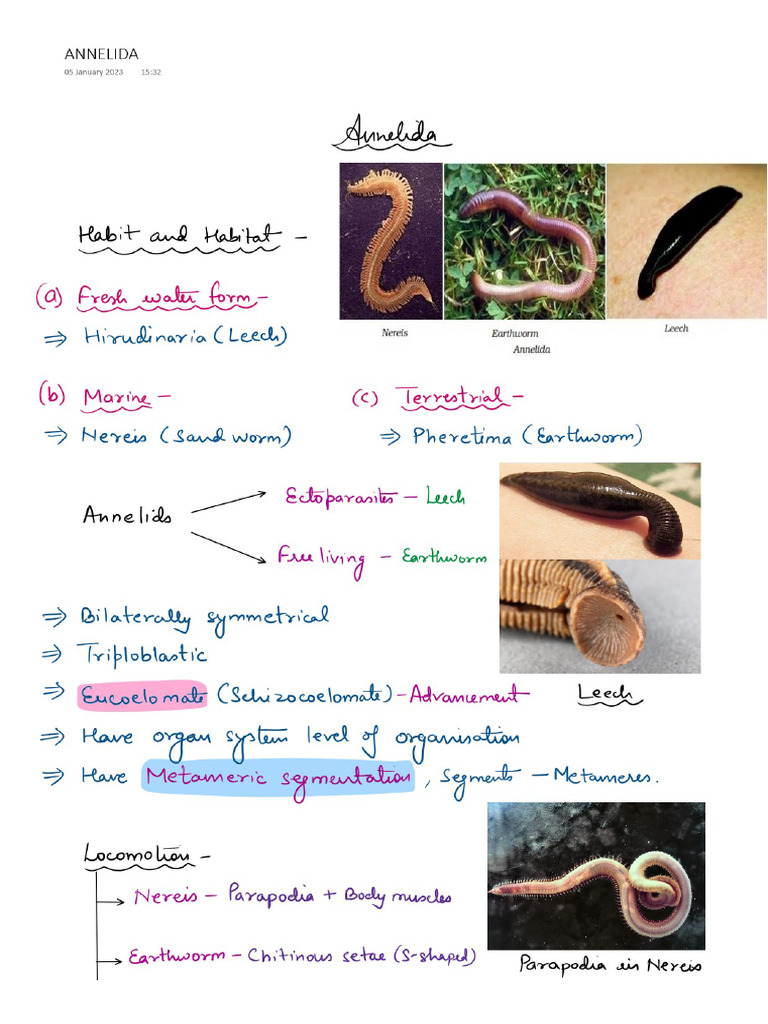 ANNELIDA
05 January 2023 15:32
Annelida
Nereis
Earthworm
Leech
Annelida
Habit and Habitat –
(a) Fresh water form –
⇒ Hirudinaria (Leech)
(b) Marine –
⇒ Nereis (Sand worm)
(c) Terrestrial –
⇒ Pheretima (Earthworm)
Annelids
Ectoparasites – Leech
Free living – Earthworm
⇒ Bilaterally symmetrical
⇒ Triploblastic
⇒ Eucoelomate (Schizocoelomate) – Advancement
Leech
⇒ Have organ system level of organisation
⇒ Have Metameric segmentation, Segments – Metameres.
Locomotion –
Nereis – Parapodia + Body muscles
Earthworm – Chitinous setae (S-shaped)
Parapodia in Nereis